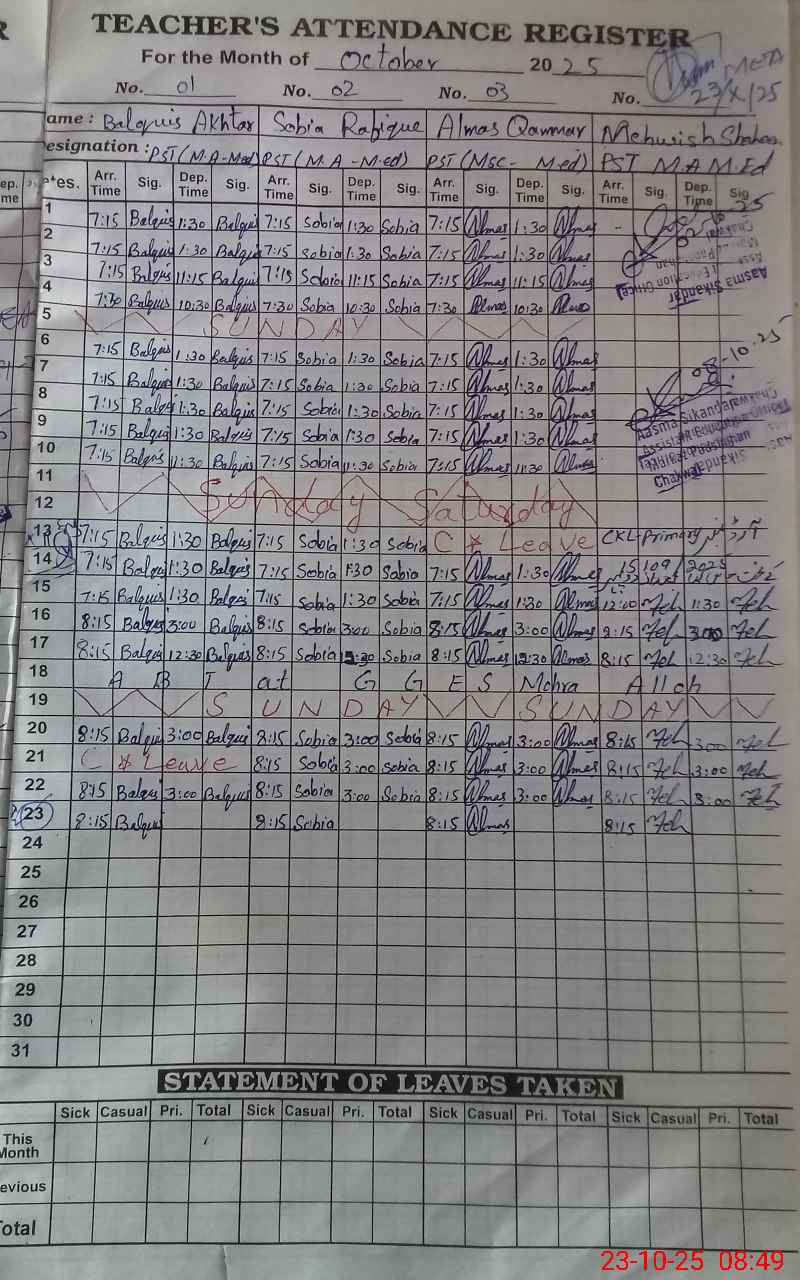 TEACHER'S ATTENDANCE REGISTER
For the Month of October 2025
No. 01 No. 02 No. 03 No.
META
23/X/25
ame : Balquis Akhtar Sobia Rafique Almas Qammar Mehwish Shaheen
esignation : PST (M.A-Med) PST (M.A-Med) PST (Msc- Med) PST M.A M.Ed
Arr. Time Sig. Dep. Time Sig. Arr. Time Sig. Dep. Time Sig. Arr. Time Sig. Dep. Time Sig. Arr. Time Sig. Dep. Time Sig
1 7:15 Balquis 1:30 Balquis 7:15 Sobia 1:30 Sobia 7:15 Almas 1:30 Almas
2 7:15 Balquis 1:30 Balquis 7:15 Sobia 1:30 Sobia 7:15 Almas 1:30 Almas
3 7:15 Balquis 11:15 Balquis 7:15 Sobia 11:15 Sobia 7:15 Almas 11:15 Almas
4 7:30 Balquis 10:30 Balquis 7:30 Sobia 10:30 Sobia 7:30 Almas 10:30 Almas
Aasma Sikandar
5 SUNDAY
6 7:15 Balquis 1:30 Balquis 7:15 Sobia 1:30 Sobia 7:15 Almas 1:30 Almas
08-10.25
7 7:15 Balquis 1:30 Balquis 7:15 Sobia 1:30 Sobia 7:15 Almas 1:30 Almas
8 7:15 Balquis 1:30 Balquis 7:15 Sobia 1:30 Sobia 7:15 Almas 1:30 Almas
9 7:15 Balquis 1:30 Balquis 7:15 Sobia 1:30 Sobia 7:15 Almas 1:30 Almas
Aasma Sikandar
10 7:15 Balquis 11:30 Balquis 7:15 Sobia 11:30 Sobia 7:15 Almas 11:30 Almas
11
12 Sunday Saturday
13 7:15 Balquis 1:30 Balquis 7:15 Sobia 1:30 Sobia C * Leave CKL-Primary
14 7:15 Balquis 1:30 Balquis 7:15 Sobia 1:30 Sobia 7:15 Almas 1:30 Almas 15/09/2025
15 7:15 Balquis 1:30 Balquis 7:15 Sobia 1:30 Sobia 7:15 Almas 1:30 Almas 12:00 1:30
16 8:15 Balquis 3:00 Balquis 8:15 Sobia 3:00 Sobia 8:15 Almas 3:00 Almas 8:15 3:00
17 8:15 Balquis 12:30 Balquis 8:15 Sobia 12:30 Sobia 8:15 Almas 12:30 Almas 8:15 12:30
18 A B T at G G E S Mohra Alloh
19 SUNDAY SUNDAY
20 8:15 Balquis 3:00 Balquis 8:15 Sobia 3:00 Sobia 8:15 Almas 3:00 Almas 8:15 3:00
21 C * Leave 8:15 Sobia 3:00 Sobia 8:15 Almas 3:00 Almas 8:15 3:00
22 8:15 Balquis 3:00 Balquis 8:15 Sobia 3:00 Sobia 8:15 Almas 3:00 Almas 8:15 3:00
23 8:15 Balquis 8:15 Sobia 8:15 Almas 8:15
24
25
26
27
28
29
30
31
STATEMENT OF LEAVES TAKEN
Sick Casual Pri. Total Sick Casual Pri. Total Sick Casual Pri. Total Sick Casual Pri. Total
This Month
evious
otal
23-10-25 08:49